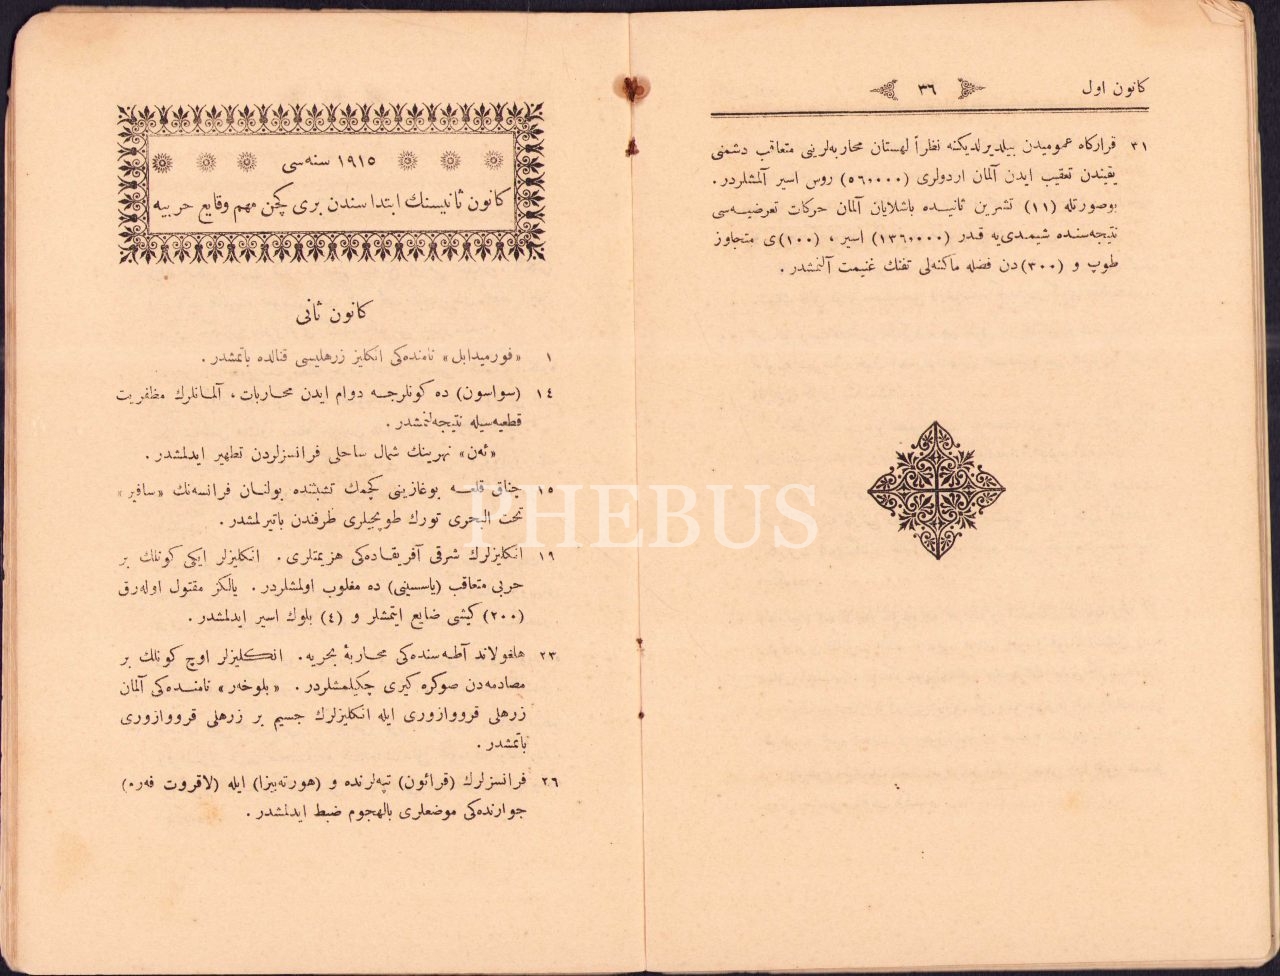 كانون اول
٣٦
٣١ قرارگاه عموميدن بيلديرلديكنه نظراً لهستان محاربه‌لرينى متعاقب دشمنى
يقيندن تعقيب ايدن آلمان اردولرى (٥٦٫٠٠٠) روس اسير آلمشلردر.
بوصورتله (١١) تشرين ثانيده باشلايان آلمان حركات تعرضيه‌سى
نتيجه‌سنده شيمدى‌يه قدر (١٣٦٫٠٠٠) اسير ، (١٠٠)ى متجاوز
طوپ و (٣٠٠)دن فضله ماكنه‌لى تفنك غنيمت آلنمشدر.
١٩١٥ سنه‌سى
كانون ثانيسنك ابتداسندن برى كچن مهم وقايع حربيه
كانون ثانى
١ «فورميدابل» نامنده‌كى انكليز زرهليسى قنالده باتمشدر.
١٤ (سواسون) ده كونلرجه دوام ايدن محاربات، آلمانلرك مظفريت
قطعيه‌سيله نتيجه‌لنمشدر.
«ئه‌ن» نهرينك شمال ساحلى فرانسزلردن تطهير ايدلمشدر.
١٥ چناق قلعه بوغازينى كچمك تشبثنده بولنان فرانسه‌نك «سافير»
تحت البحرى تورك طوپجيلرى طرفندن باتيرلمشدر.
١٩ انكليزلرك شرقى آفريقاده‌كى هزيمتلرى. انكليزلر ايكى كونلك بر
حربى متعاقب (ياسسينى) ده مغلوب اولمشلردر. يالكز مقتول اوله‌رق
(٢٠٠) كيشى ضايع ايتمشلر و (٤) بلوك اسير ايدلمشدر.
٢٣ هلغولاند آطه‌سنده‌كى محاربۀ بحريه. انكليزلر اوچ كونلك بر
مصادمه‌دن صوكره كيرى چكيلمشلردر. «بلوخه‌ر» نامنده‌كى آلمان
زرهلى قرووازورى ايله انكليزلرك جسيم بر زرهلى قرووازورى
باتمشدر.
٢٦ فرانسزلرك (قرائون) تپه‌لرنده و (هورته‌بيزا) ايله (لاقروت فه‌ره)
جوارنده‌كى موضعلرى بالهجوم ضبط ايدلمشدر.
PHEBUS